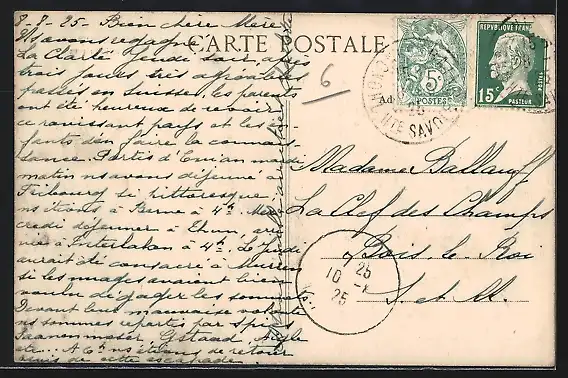 8-8-25 - Bien chère Mère
Ns avons regagné
La Clarté jeudi soir, après
trois jours très agréables
passés en Suisse, les parents
ont été heureux de revoir
ce ravissant pays et les en-
fants d'en faire la connais-
sance. Partis d'Evian mardi
matin ns avons déjeuné à
Fribourg si pittoresque
ns étions à Berne à 4h. Mer-
credi déjeuner à Thun, arri-
vée à Interlaken à 4h. Le Jeudi
aurait été consacré à Murren
si les nuages avaient bien
voulu dégager les sommets.
Devant leur mauvaise volonté
ns sommes repartis par Spiez
Saanenmoser, Gstaad, Aigle
etc... A 6h ns étions de retour
ravis de cette escapade
CARTE POSTALE
6
5c
POSTES
REPUBLIQUE FRANÇAISE
15c
POSTES
PASTEUR
HTE SAVOIE
Madame Ballauff
La Clef des Champs
Bois-le-Roi
S. et M.
10 - 8
25